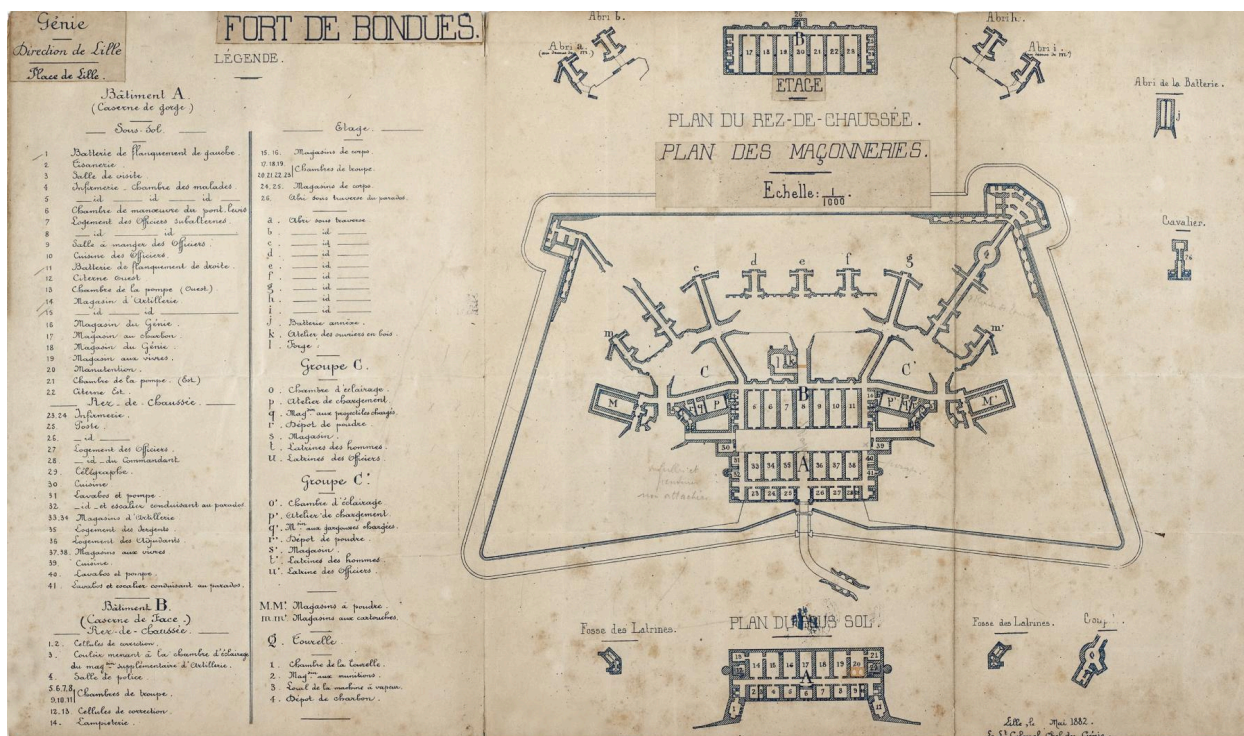 Génie
Direction de Lille
Place de Lille.
FORT DE BONDUES.
LÉGENDE.
Bâtiment A
(Caserne de gorge)
Sous-Sol.
1 Batterie de flanquement de gauche.
2 Tisanerie.
3 Salle de visite
4 Infirmerie - Chambre des malades.
5 — id — id — id —
6 Chambre de manœuvre du pont-levis
7 Logement des Officiers subalternes.
8 — id — id —
9 Salle à manger des Officiers.
10 Cuisine des Officiers.
11 Batterie de flanquement de droite.
12 Citerne Ouest
13 Chambre de la pompe (Ouest)
14 Magasin d'Artillerie
15 — id — id —
16 Magasin du Génie.
17 Magasin au charbon.
18 Magasin du Génie.
19 Magasin aux vivres.
20 Manutention.
21 Chambre de la pompe. (Est.)
22 Citerne Est.
Rez-de-Chaussée.
23,24 Infirmerie.
25. Poste.
26. — id —
27 Logement des Officiers
28 — id — du Commandant
29. Télégraphe.
30 Cuisine
31 Lavabos et pompe.
32 — id — et escalier conduisant au parados
33,34 Magasins d'Artillerie
35 Logement des Sergents
36 Logement des Adjudants.
37,38. Magasins aux vivres
39. Cuisine.
40. Lavabos et pompe.
41. Lavabos et escalier conduisant au parados.
Bâtiment B.
(Caserne de Face.)
Rez-de-Chaussée.
1,2. Cellules de correction.
3. Couloir menant à la chambre d'éclairage
du mag.sin supplémentaire d'Artillerie.
4. Salle de police
5.6.7.8 9.10.11 Chambres de troupe.
12.13. Cellules de correction
14. Lampisterie.
Etage.
15.16. Magasins de corps.
17.18.19. 20.21.22.23 Chambres de troupe.
24.25. Magasins de corps.
26. Abri sous traverse du parados.
a. Abri sous traverse
b. — id —
c. — id —
d — id —
e — id —
f — id —
g. — id —
h. — id —
i. — id —
j. Batterie annexe.
k. Atelier des ouvriers en bois
l. Forge.
Groupe C.
o. Chambre d'éclairage
p. Atelier de chargement
q. Mag.sin aux projectiles chargés.
r. Dépôt de poudre.
s. Magasin.
t. Latrines des hommes.
u. Latrines des Officiers.
Groupe C'.
o'. Chambre d'éclairage
p'. Atelier de chargement
q'. M.sin aux gargousses chargées.
r'. Dépôt de poudre.
s'. Magasin.
t'. Latrines des hommes
u'. Latrine des Officiers.
M.M'. Magasins à poudre.
m.m'. Magasins aux cartouches.
Q. Tourelle
1. Chambre de la tourelle
2. Mag.sin aux munitions.
3. Local de la machine à vapeur.
4. Dépôt de charbon.
Abri b.
Abri a.
26
B
17 18 19 20 21 22 23
ETAGE
Abri h.
Abri i.
Abri de la Batterie.
j
PLAN DU REZ-DE-CHAUSSÉE.
PLAN DES MAÇONNERIES.
Echelle: 1/1000
Cavalier.
76
c d e f g
m m'
C C'
B
5 6 7 8 9 10 11
M M'
q p p' q'
30 39
A
33 34 35 36 37 38
23 24 25 26 27 28
Fosse des Latrines.
PLAN DU SOUS SOL.
A
14 15 16 17 18 19 20 21
1 2 3 4 5 6 7 8 9 10 11
Fosse des Latrines.
Lille, le Mai 1882.
Le Lt Colonel, Chef du Génie